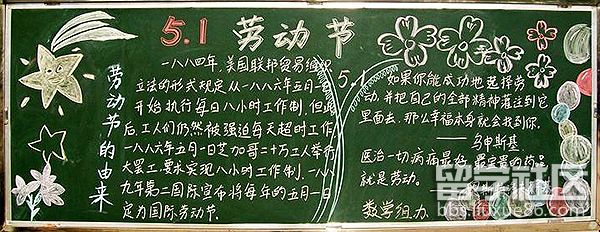 5.1 劳动节
劳动节的由来
一八八四年,美国联邦贸易组织
立法的形式规定从一八八六年五月一日
开始执行每日八小时工作制,但此
后,工人们仍然被强迫每天超时工作
一八八六年五月一日芝加哥二十万工人举行
大罢工,要求实现八小时工作制,一八八
九年第二国际宣布将每年的五月一日
定为国际劳动节.
5.1
如果你能成功地选择劳
动,并把自己的全部精神灌注到它
里面去,那么幸福本身就会找到你.
——乌申斯基
医治一切病痛最好、最宝贵的药品
就是劳动.
数学组办
留学社区
bbs.liuxue86.com